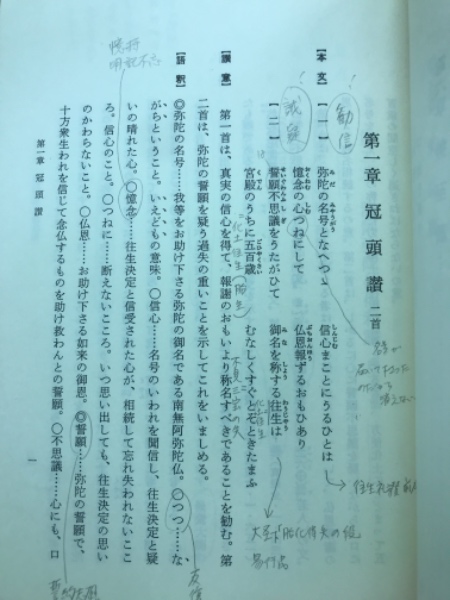 第一章 冠頭讃 二首
【本文】
【一】
弥陀の名号となへつゝ 信心まことにうるひとは
憶念の心つねにして 仏恩報ずるおもひあり
【二】
誓願不思議をうたがひて 御名を称する往生は
宮殿のうちに五百歳 むなしくすぐとぞときたまふ
【讃意】 第一首は、真実の信心を得て、報謝のおもいより称名すべきであることを勧む。第
二首は、弥陀の誓願を疑う過失の重いことを示してこれをいましめる。
【語釈】 ◎弥陀の名号……我等をお助け下さる弥陀の御名である南無阿弥陀仏。○つつ……な
がらということ。いえどもの意味。○信心……名号のいわれを聞信し、往生決定と疑
いの晴れた心。○憶念……往生決定と信受された心が、相続して忘れ失われないここ
ろ。信心のこと。○つねに……断えないこころ。いつ思い出しても、往生決定の思い
のかわらないこと。○仏恩……お助け下さる如来の御恩。◎誓願……弥陀の誓願で、
十方衆生われを信じて念仏するものを助け救わんとの誓願。○不思議……心にも、口
第一章 冠頭讃
一
勧信
誡疑